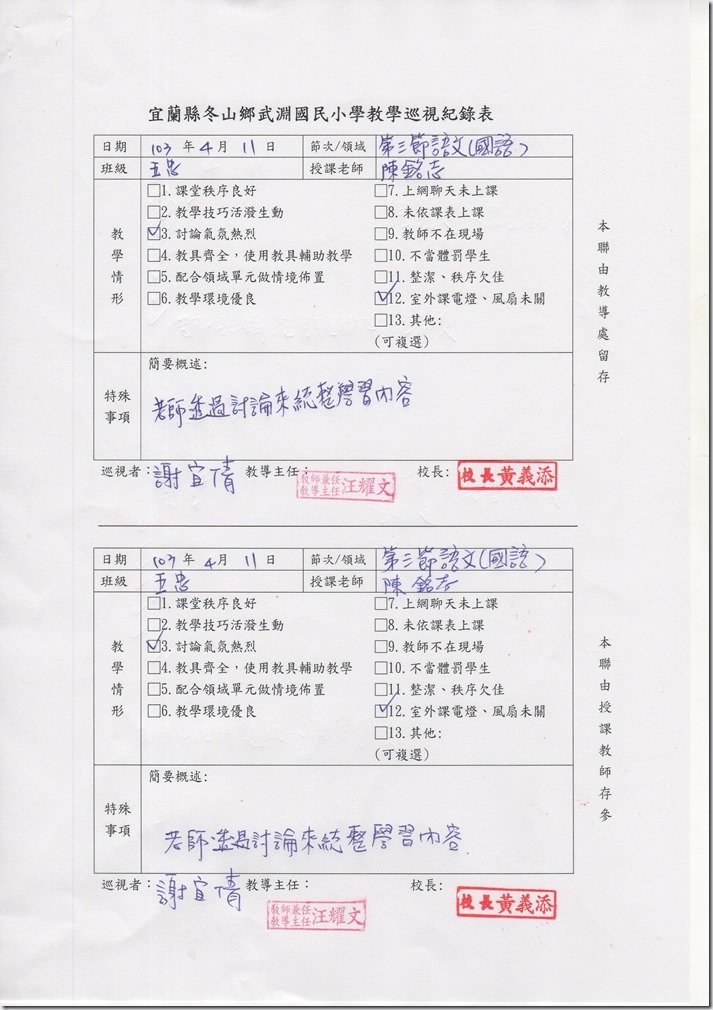 宜蘭縣冬山鄉武淵國民小學教學巡視紀錄表
日期 103 年 4 月 11 日 節次/領域 第三節語文(國語)
班級 五忠 授課老師 陳銘志
教學情形
□1. 課堂秩序良好 □7. 上網聊天未上課
□2. 教學技巧活潑生動 □8. 未依課表上課
☑3. 討論氣氛熱烈 □9. 教師不在現場
□4. 教具齊全，使用教具輔助教學 □10. 不當體罰學生
□5. 配合領域單元做情境佈置 □11. 整潔、秩序欠佳
□6. 教學環境優良 ☑12. 室外課電燈、風扇未關
□13. 其他:
(可複選)
特殊事項
簡要概述:
老師透過討論來統整學習內容
巡視者：謝宜倩 教導主任： 教師兼任教導主任 汪耀文 校長: 校長黃義添
本聯由教導處留存
日期 103 年 4 月 11 日 節次/領域 第三節語文(國語)
班級 五忠 授課老師 陳銘志
教學情形
□1. 課堂秩序良好 □7. 上網聊天未上課
□2. 教學技巧活潑生動 □8. 未依課表上課
☑3. 討論氣氛熱烈 □9. 教師不在現場
□4. 教具齊全，使用教具輔助教學 □10. 不當體罰學生
□5. 配合領域單元做情境佈置 □11. 整潔、秩序欠佳
□6. 教學環境優良 ☑12. 室外課電燈、風扇未關
□13. 其他:
(可複選)
特殊事項
簡要概述:
老師透過討論來統整學習內容
巡視者：謝宜倩 教導主任： 教師兼任教導主任 汪耀文 校長: 校長黃義添
本聯由授課教師存參